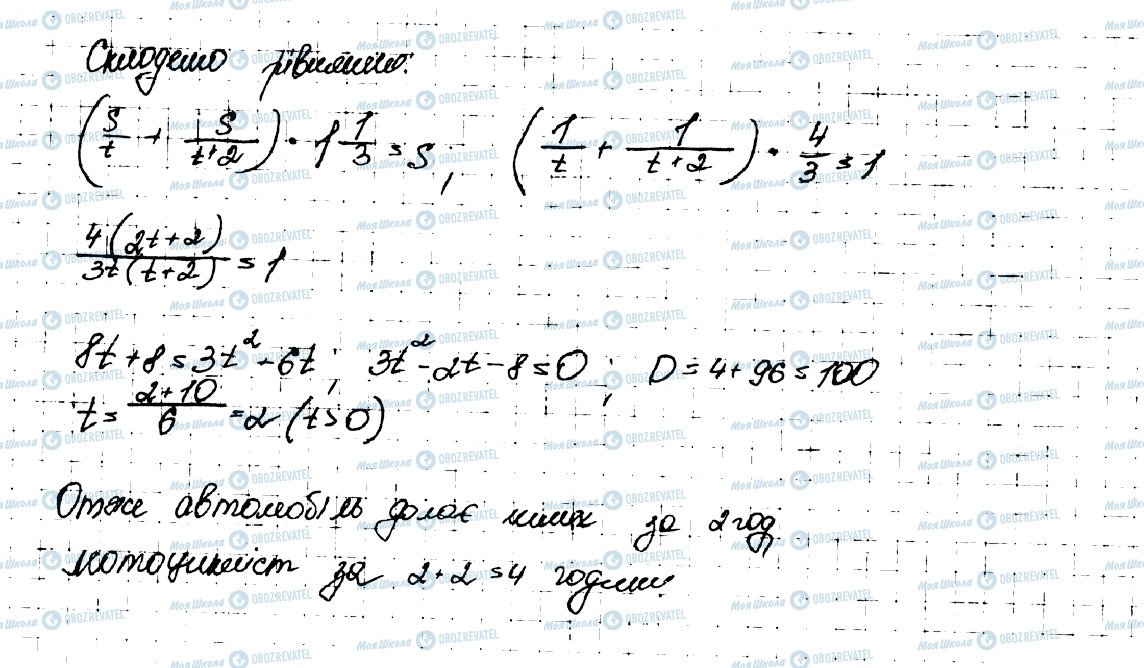 Складемо рівняння:
(S/t + S/(t+2)) · 1 1/3 = S; (1/t + 1/(t+2)) · 4/3 = 1
4(2t+2)/3t(t+2) = 1
8t + 8 = 3t² - 6t; 3t² - 2t - 8 = 0; D = 4 + 96 = 100
t = (2+10)/6 = 2 (t>0)
Отже автомобіль долає шлях за 2 год
мотоцикліст за 2+2=4 години.
Моя Школа OBOZREVATEL